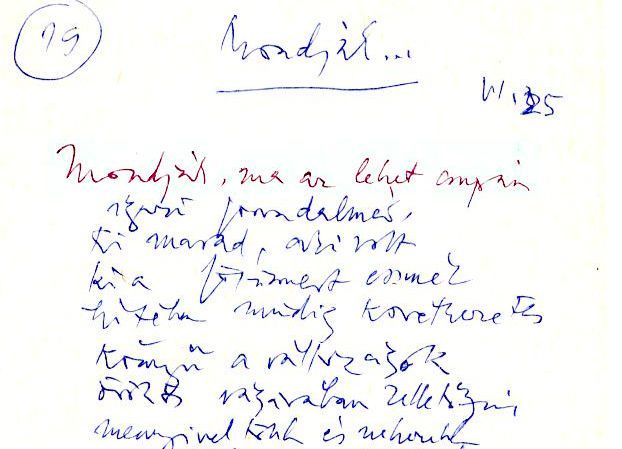 19
Mondják...
VI. 25
Mondják, ma az lehet csupán
igazi forradalmár,
ki marad, aki volt
ki a fölismert eszmék
hitében mindig következetes
Könnyű a változások
örökös
mennyivel több és nehezebb